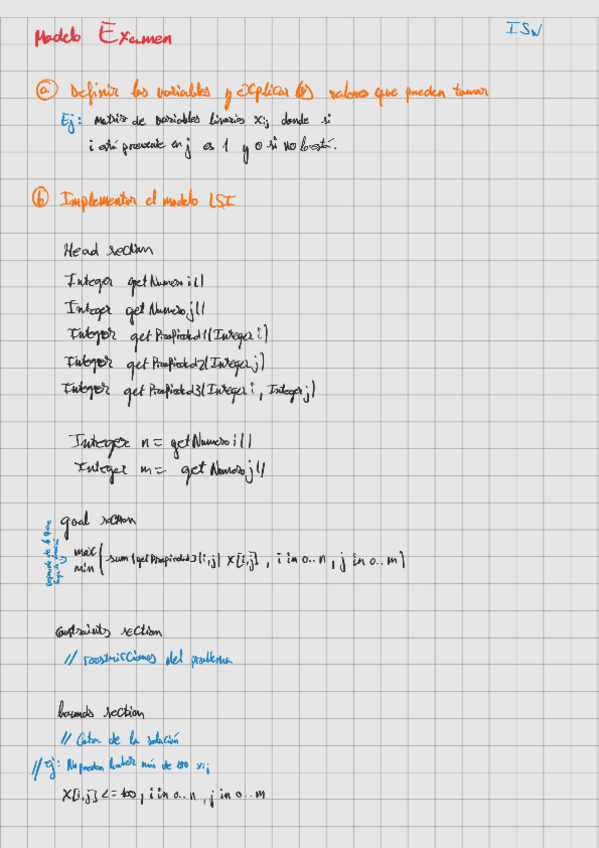 Modelo Examen
ISW
a) Definir las variables y explicar los valores que pueden tomar
Ej: Matriz de variables binarias Xij donde si
i está presente en j es 1 y 0 si no lo está.
b) Implementar el modelo LSI
Head section
Integer getNumeroi()
Integer getNumeroj()
Integer getPropiedad1(Integer i)
Integer getPropiedad2(Integer j)
Integer getPropiedad3(Integer i, Integer j)
Integer n = getNumeroi()
Integer m = getNumeroj()
goal section
depende de lo que
max
min
sum(getPropiedad3(i,j) X[i,j], i in 0..n, j in 0..m)
Constraints section
// restricciones del problema
bounds section
// Cota de la solución
// Ej: No pueden haber más de 100 Xij
X[i,j] <= 100, i in 0..n, j in 0..m